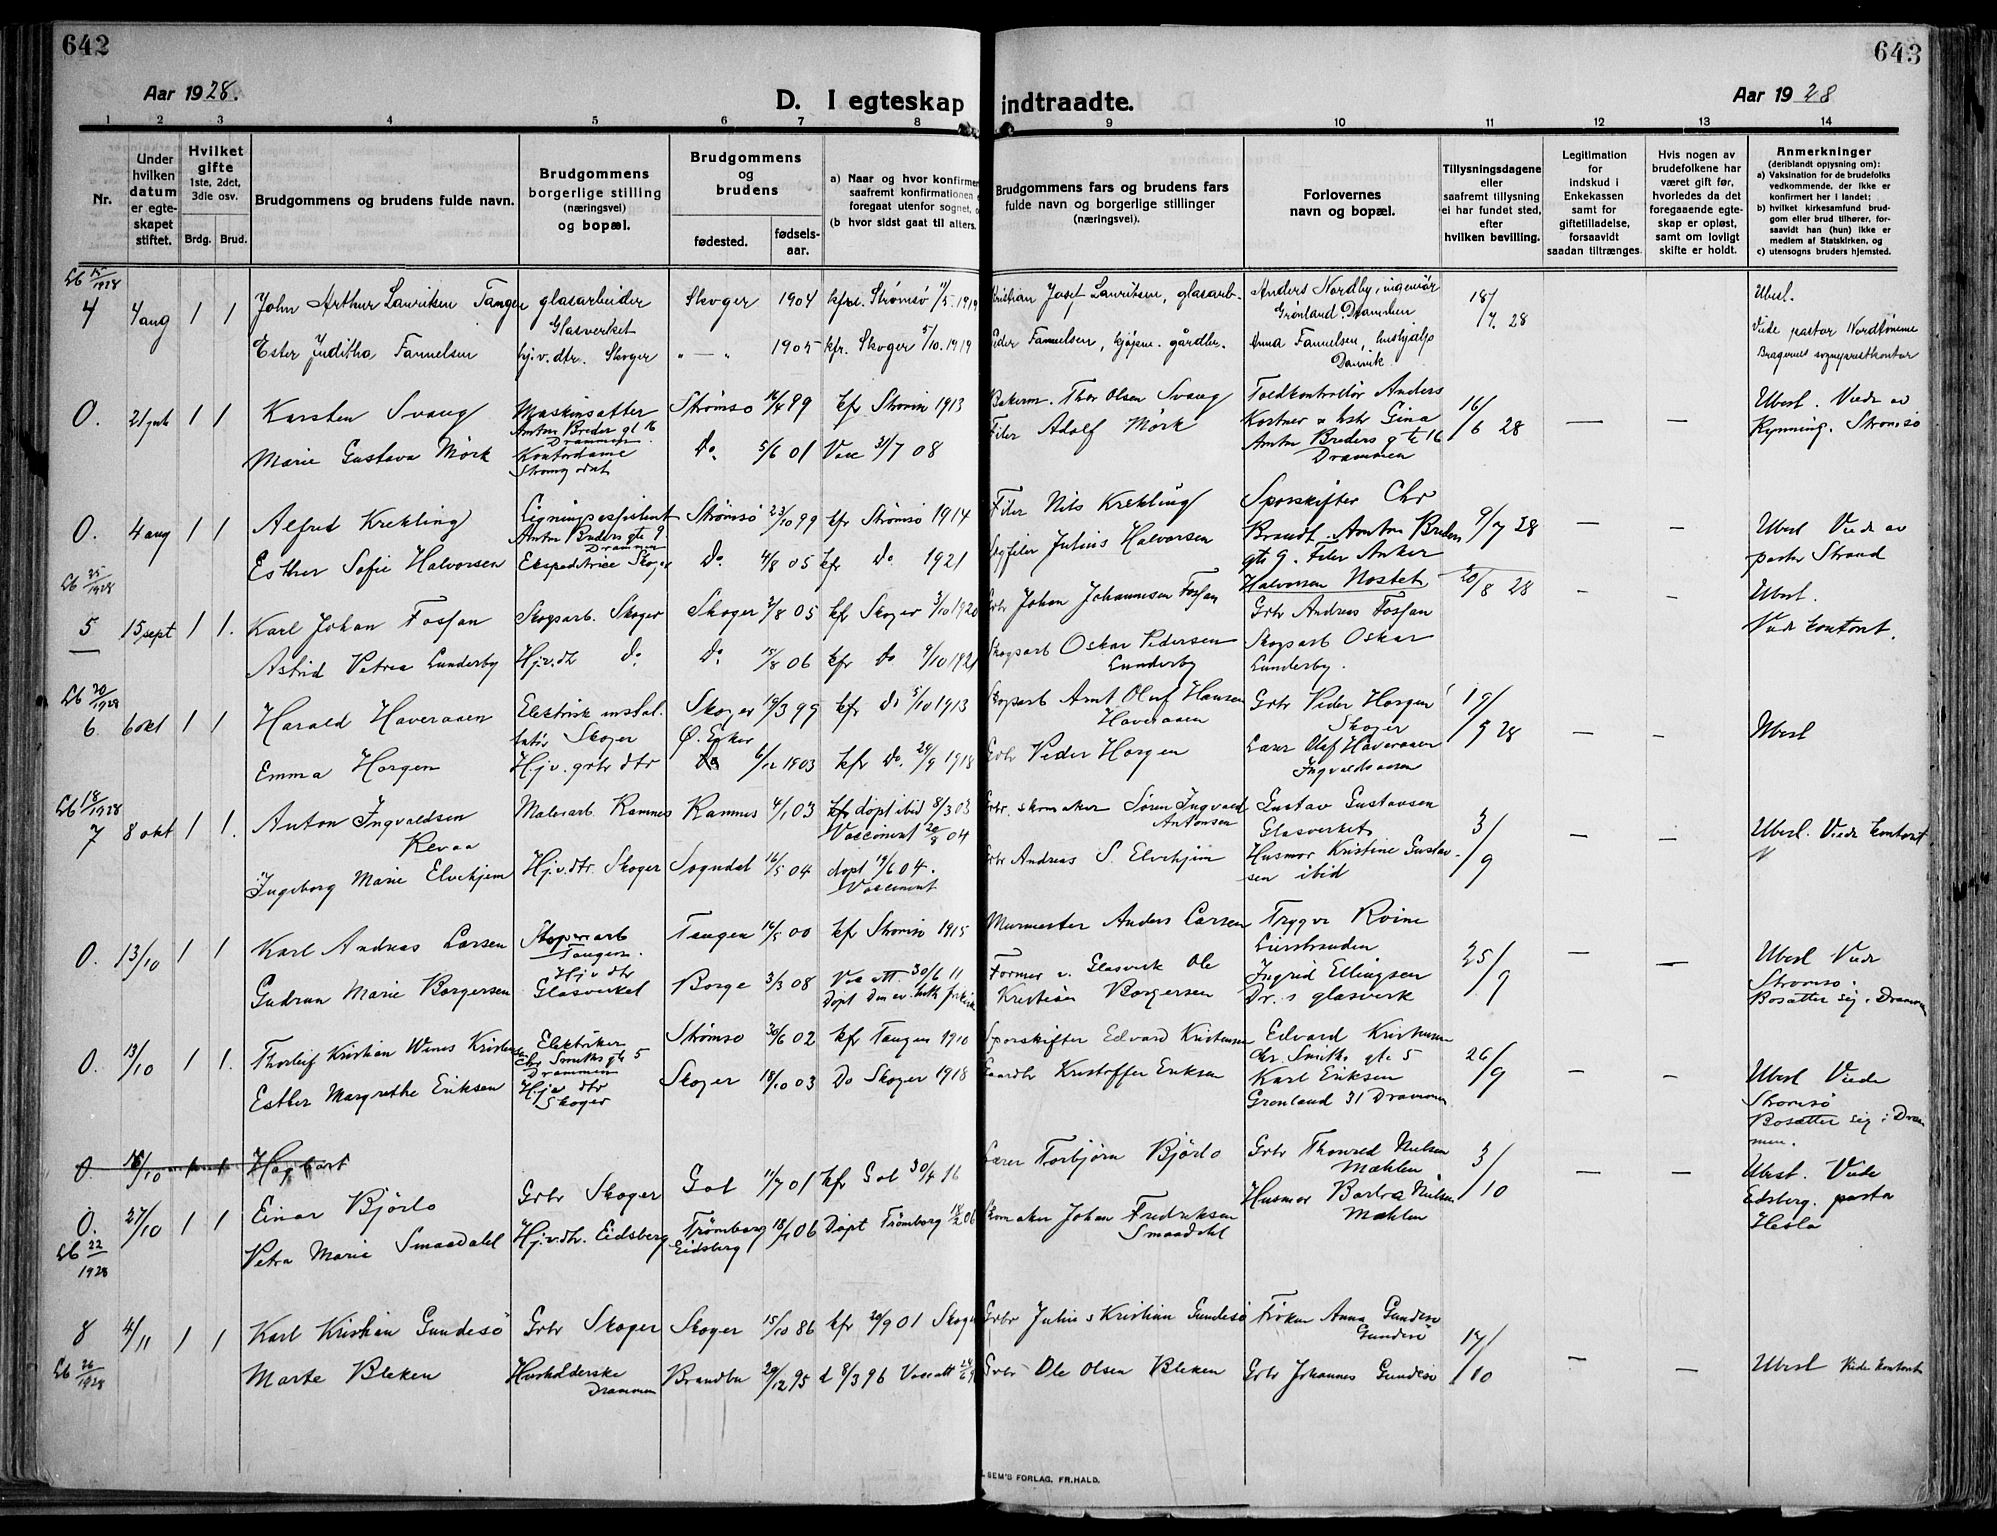 642
643
Aar 1928.
D. I egteskap indtraadte.
Aar 1928
1 2 3 4 5 6 7 8 9 10 11 12 13 14
Nr.
Under hvilken datum er egteskapet stiftet.
Hvilket gifte 1ste, 2det, 3die osv.
Brdg. Brud.
Brudgommens og brudens fulde navn.
Brudgommens borgerlige stilling (næringsvei) og bopæl.
Brudgommens og brudens
fødested. fødsels-aar.
a) Naar og hvor konfirmer
saafremt konfirmationen
foregaat utenfor sognet,
(b hvor sidst gaat til alters.
Brudgommens fars og brudens fars fulde navn og borgerlige stillinger (næringsvei).
Forlovernes navn og bopæl.
Tillysningsdagene eller saafremt tillysning ei har fundet sted, efter hvilken bevilling.
Legitimation for indskud i Enkekassen samt for giftetilladelse, forsaavidt saadan tiltrænges.
Hvis nogen av brudefolkene har været gift før, hvorledes da det foregaaende egteskap er opløst, samt om lovligt skifte er holdt.
Anmerkninger
(deriblandt opjysning om):
a) Vaksination for de brudefolks vedkommende, der ikke er konfirmert her i landet;
b) hvilket kirkesamfund brudgom eller brud tilhører, forsaavidt han (hun) ikke er medlem af Statskirken, og
c) utensogns bruders hjemsted.
Lb 15/1928
4 4 aug 1 1 John Arthur Lauritsen Tangen glasarbeider Glasverket Skoger 1904 kfr. Strømsø 1919 Kristian Josef Lauritsen, glasarb. Anders Nordby, ingeniør Grønland, Drammen 18/7. 28 Ubesl.
Ester Juditha Fannelsen hj.v.dtr. Skoger " — " 1905 kfr. Skoger 5/10. 1919 Peder Fannelsen, gårdbr. Anna Fannelsen, hushjælp Danvik Viede pastor Bragernes sogneprestkontor
0. 21 juli 1 1 Karsten Svang Maskinsætter Anton Breders gt 16 Drammen Strømsø 16/4 99 kfr Strømsø 1913 Bakerm. Thor Olsen Svang Toldkontrollør Anders Kostner + hstr Gina Anton Breders gte 16 Drammen 16/6 28 — — Ubesl. Viede av Rynning. Strømsø
Marie Gustava Mørk Kontordame Do. 5/6 01 Vacc 31/7 08 Filer Adolf Mørk
0. 4 aug 1 1 Alfred Krekling Ligningsassistent Anton Breders gte 9 Drammen Strømsø 23/10 99 kfr Strømsø 1914 Filer Nils Krekling Sporskifter Chr Brandt. Anton Breders gte 9. Filer Anker Halvorsen Nøstet 9/7 28 — — Ubesl Viede av pastor Strand
Esther Sofie Halvorsen Ekspeditrice Skoger Do. 4/8 05 kfr Do 1921 Julius Halvorsen
Lb 25/1928
5 15 sept 1 1. Karl Johan Fossan Skogsarb. Skoger Skoger 2/8 05 kfr Skoger 3/10 1920 Grbr Johan Johannesen Fossan Grbr Andreas Fossan 20/8 28 - - Ubesl. Viede kontoret.
Astrid Petrea Lunderby Hj.v.dtr Do Do. 06 kfr Do 9/10 1921 Skogsarb Oskar Pedersen Lunderby Skogsarb Oskar Lunderby.
Lb 20/1928
6. 6 okt 1 1 Harald Haveraaen Elektrisk instal. latør Skoger Skoger 3 99 kfr Do 5/10 1913 Skogsarb Arnt Oluf Hansen Haveraaen Grbr Peder Horgen Skoger 19/9 28 — — Ubesl
Emma Horgen Hj.v. grbr dtr Ø. Eker 6/12 1903 kfr Do. 29/9 1918 Grbr Peder Horgen Olaf Haveraaen
Lb 18/1928
7 8 okt 1 1. Anton Ingvaldsen Revaa Malerarb Ramnes Ramnes 4/1 03 døpt ibid 8/3 03 Vaccinert 04 Grbr. skomaker Søren Ingvald Antonsen Gustav Gustavsen Glasverket 3/9 — — Ubesl. Viede kontoret
Ingeborg Marie Elvehjem Hj.v.dtr. Skoger Sogndal 16/5 04 døpt 19/6 04. Vaccinert Grbr Andreas S. Elvehjem Husmor Kristine Gustavsen ibid
0. 13/10 1 1 Karl Andreas Larsen Tangen. Tangen 14/5 00 kfr Strømsø 1915 Murmester Anders Larsen Trygve Roine Lierstranden 25/9 — — Ubesl Viede Strømsø. Bosætter sig i Drammen
Gudrun Marie Borgersen Hj v dtr Glasverket Borge 3/3 08 30/6 11 Former v. Glasverk Ole Kristian Borgersen Ingrid Ellingsen Dr.s glasverk
0. 13/10 1 1. Thorleif Kristian Wines Kristensen Elektriker Chr Smiths gte 5 Drammen Strømsø 30/6 02 kfr Tangen 1910 Sporskifter Edvard Kristensen Edvard Kristensen Chr. Smiths gte 5 26/9 — — Ubesl Viede Strømsø Bosætter sig i Drammen.
Esther Margrethe Eriksen Hjv dtr Skoger Skoger 18/10 03 Do Skoger 1918 Gaardbr Kristoffer Eriksen Karl Eriksen Grønland 31 Drammen
0. 15/10 1 1 Hagbart
0. 27/10 1 1 Einar Bjørlo Grbr Skoger Gol 11/7 01 kfr Gol 30/4 16 Lærer Torbjørn Bjørlo Grbr Thorvald Nielsen Mæhlen 3/10 — — Ubesl. Viede Eidsberg. pastor
Lb 22/1928
Petra Marie Smaadahl Hj.v.dtr. Eidsberg Trømborg Eidsberg 06 Døpt Trømborg Skomaker Johan Fredriksen Smaadahl Husmor Barbra Nielsen Mæhlen
8 4/11 1 1 Karl Kristian Gundesø Grbr Skoger Skoger 15/10 86 kfr 29/9 01 Skoger Grbr Julius Kristian Gundesø Frøken Anna Gundesø 17/10 — — Ubesl Viede kontoret
Lb 26/1928
Marte Bleken Husholderske Drammen Brandbu 29/12 95 d 8/3 96 Vacc att Grbr Ole Olsen Bleken Grbr Johannes Gundesø
SEM'S FORLAG, FR.HALD.